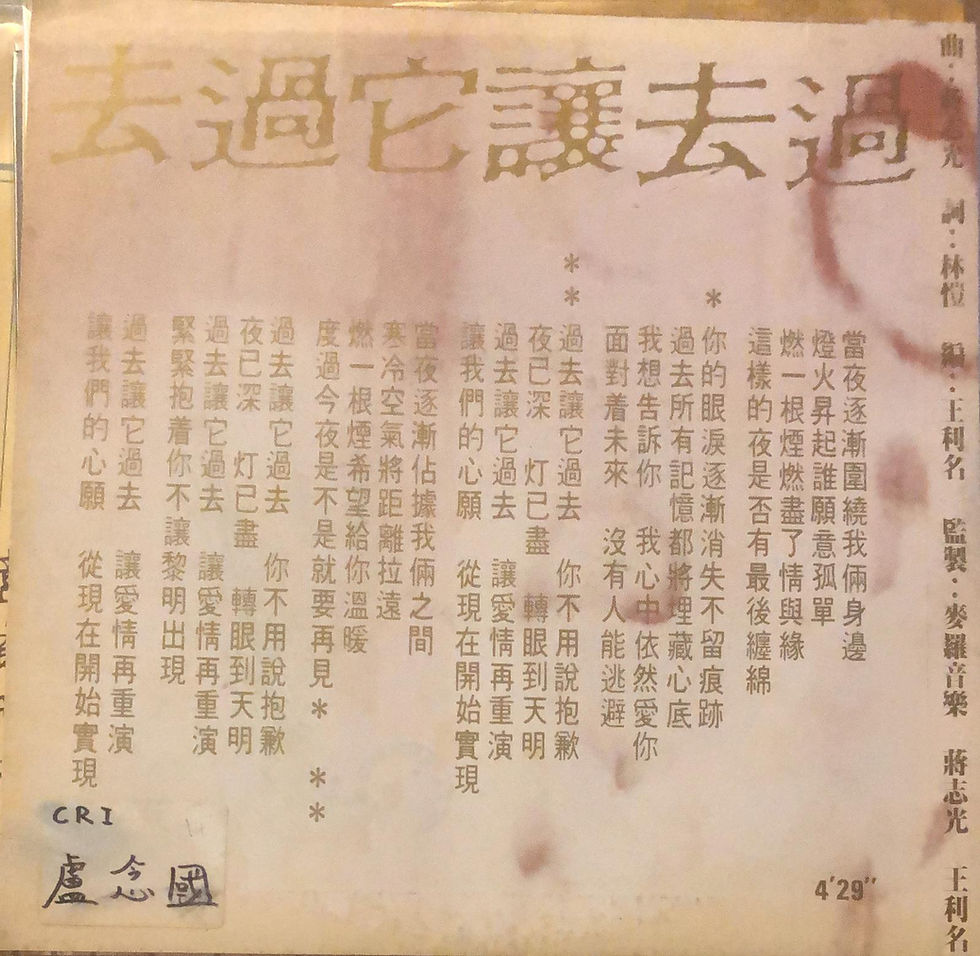 過去讓它過去
曲：光 詞：林愷 編：王利名 監製：麥羅音樂 蔣志光 王利名
當夜逐漸圍繞我倆身邊
燈火昇起誰願意孤單
燃一根煙燃盡了情與緣
這樣的夜是否有最後纏綿
*你的眼淚逐漸消失不留痕跡
過去所有記憶都將埋藏心底
我想告訴你 我心中依然愛你
面對着未來 沒有人能逃避
**過去讓它過去 你不用說抱歉
夜已深 灯已盡 轉眼到天明
過去讓它過去 讓愛情再重演
讓我們的心願 從現在開始實現
當夜逐漸佔據我倆之間
寒冷空氣將距離拉遠
燃一根煙希望給你溫暖
度過今夜是不是就要再見* **
過去讓它過去 你不用說抱歉
夜已深 灯已盡 轉眼到天明
過去讓它過去 讓愛情再重演
緊緊抱着你不讓黎明出現
過去讓它過去 讓愛情再重演
讓我們的心願 從現在開始實現
4'29"
CRI
盧念國